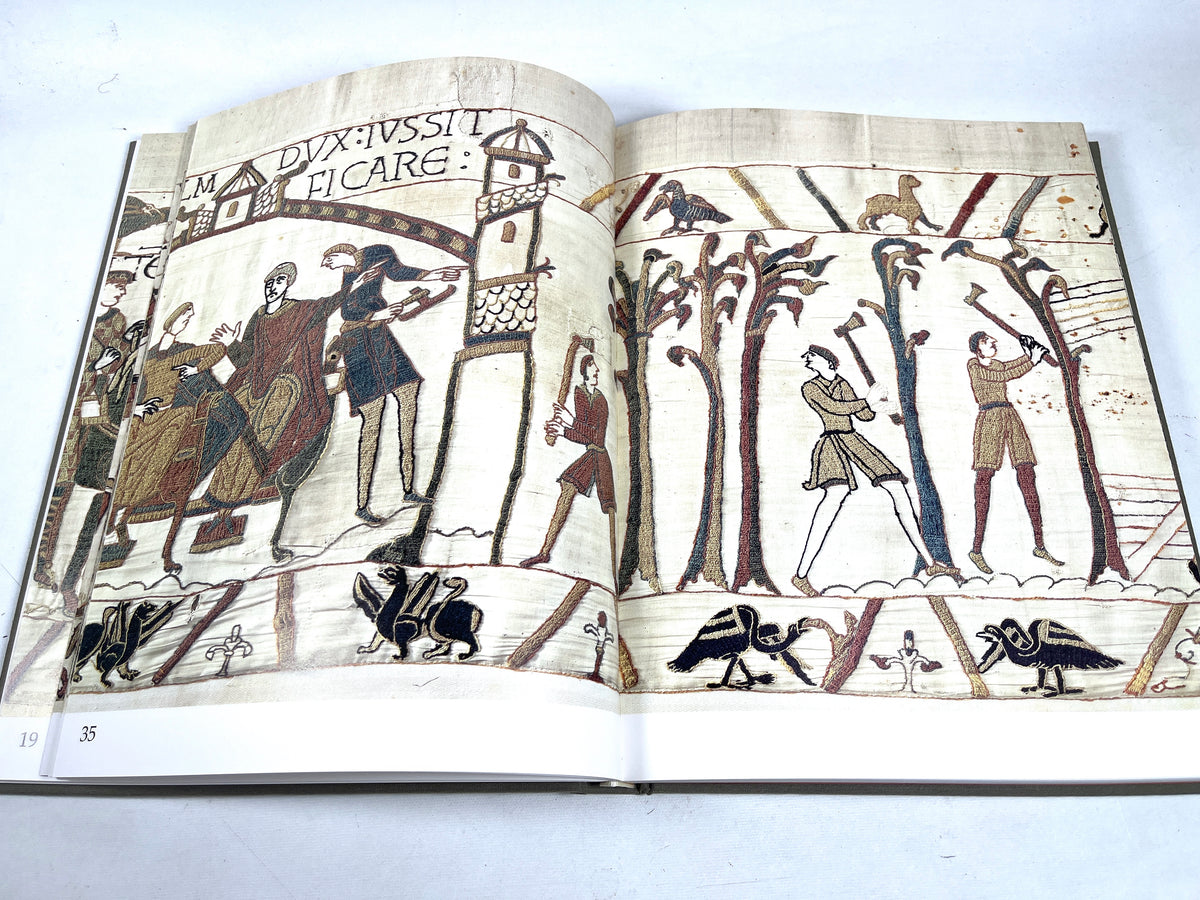 DVX: IVSSIT
LM
FICARE:
TE
19
35